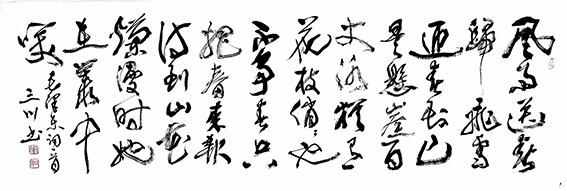 風雨送春
歸飛雪
迎春到已
是懸崖百
丈冰猶有
花枝俏俏也
不爭春只
把春来报
待到山花
爛漫时她
在叢中
笑
毛泽东词一首
三川书